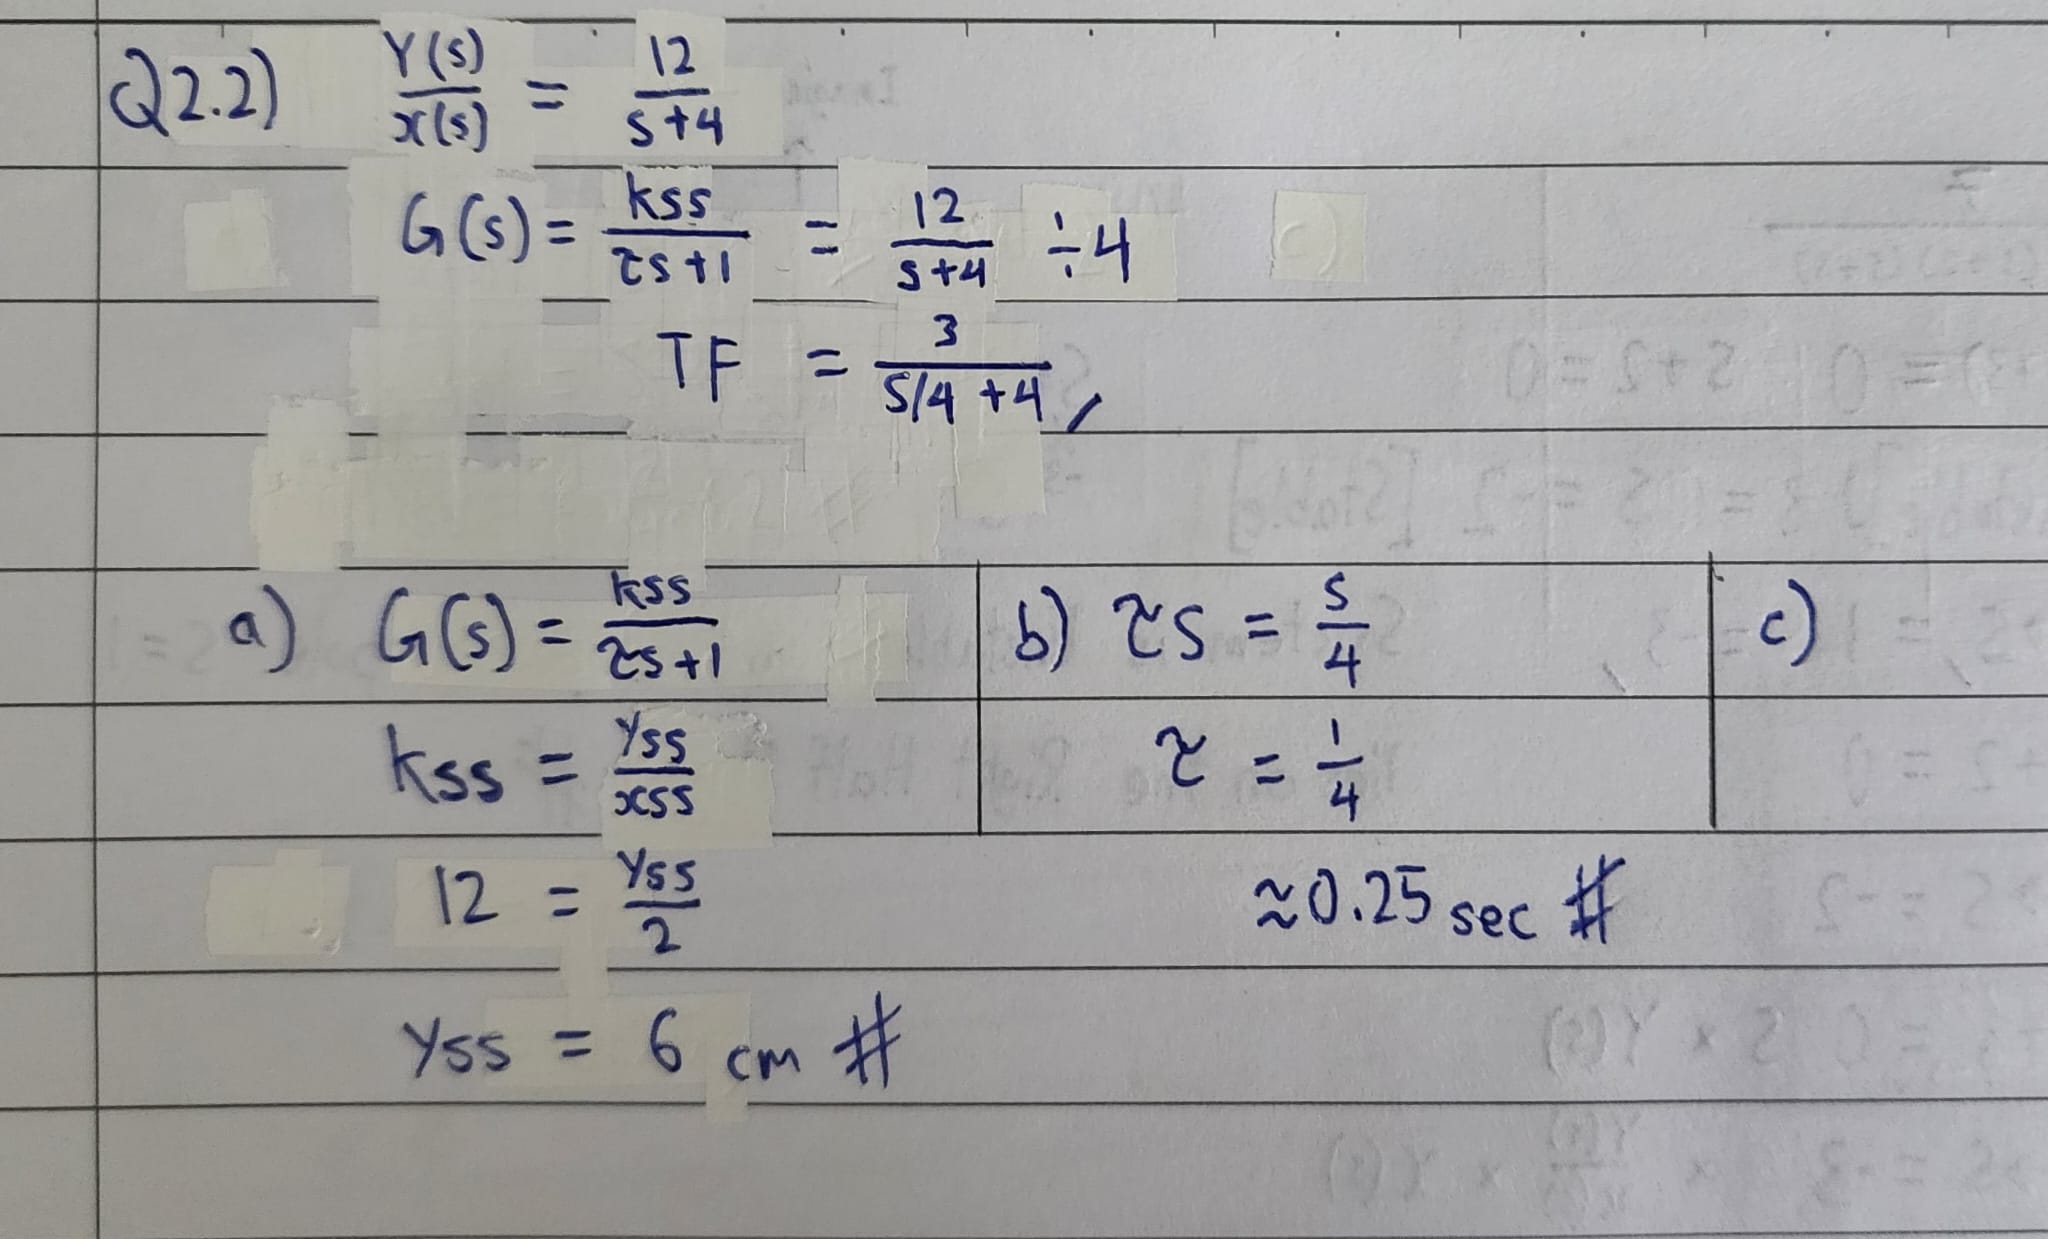 Q2.2) Y(s)/x(s) = 12/s+4
G(s) = kss/τs+1 = 12/s+4 ÷4
TF = 3/s/4 +4,
a) G(s) = kss/τs+1
kss = Yss/xss
12 = Yss/2
Yss = 6 cm #
b) τs = s/4
τ = 1/4
≈0.25 sec #
c)